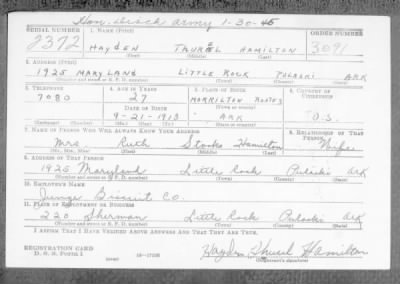 Hon. Disch Army 1-30-45
SERIAL NUMBER 1. NAME (Print) ORDER NUMBER
2372 HAYDEN THUREL HAMILTON 3091
(First) (Middle) (Last)
2. ADDRESS (Print)
1925 MARYLAND LITTLE ROCK PULASKI ARK
(Number and street or R. F. D. number) (Town) (County) (State)
3. TELEPHONE 4. AGE IN YEARS 5. PLACE OF BIRTH 6. COUNTRY OF CITIZENSHIP
7080 27 MORRILTON ROUTE 3
DATE OF BIRTH (Town or county)
9-21-1913 ARK U.S.
(Exchange) (Number) (Mo.) (Day) (Yr.) (State or country)
7. NAME OF PERSON WHO WILL ALWAYS KNOW YOUR ADDRESS 8. RELATIONSHIP OF THAT PERSON
Mrs Ruth Stooks Hamilton Wife
(Mr., Mrs., Miss) (First) (Middle) (Last)
9. ADDRESS OF THAT PERSON
1925 Maryland Little Rock Pulaski Ark
(Number and street or R. F. D. number) (Town) (County) (State)
10. EMPLOYER'S NAME
Junge Biscuit Co.
11. PLACE OF EMPLOYMENT OR BUSINESS
220 Sherman Little Rock Pulaski Ark
(Number and street or R. F. D. number) (Town) (County) (State)
I AFFIRM THAT I HAVE VERIFIED ABOVE ANSWERS AND THAT THEY ARE TRUE.
REGISTRATION CARD
D. S. S. Form 1 (over) 16—17105 Hayden Thurel Hamilton
(Registrant's signature)